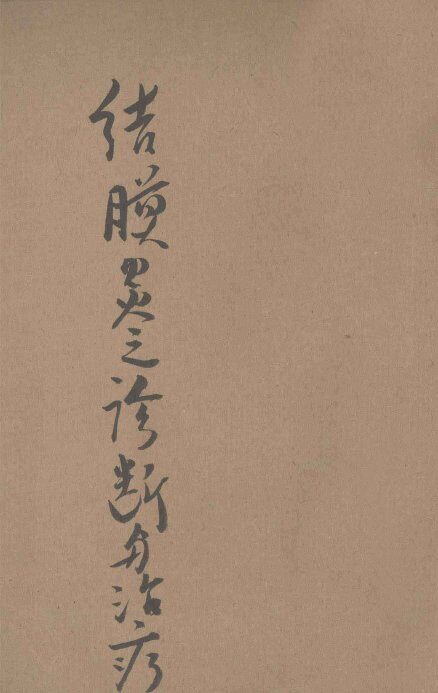 结膜炎之诊断与治疗